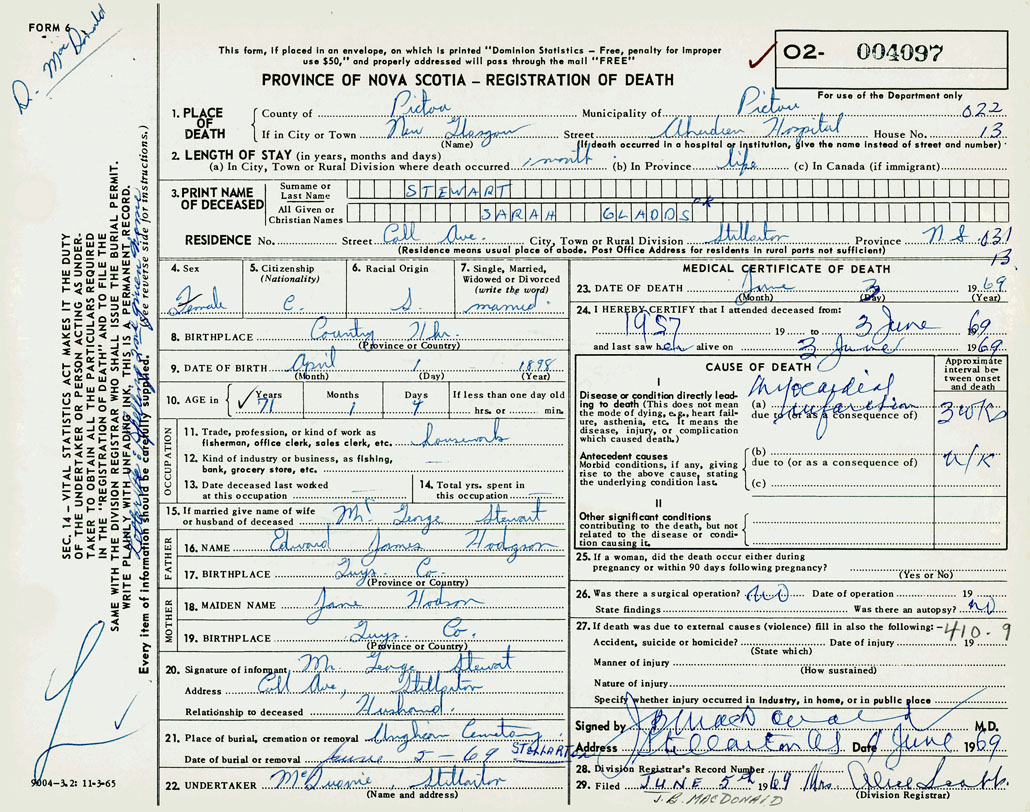 FORM 6
D. MacDonald
This form, if placed in an envelope, on which is printed "Dominion Statistics – Free, penalty for improper
use $50," and properly addressed will pass through the mail "FREE"
PROVINCE OF NOVA SCOTIA – REGISTRATION OF DEATH
✓ 02- 004097
For use of the Department only
1. PLACE OF DEATH
County of Pictou Municipality of Pictou 022
If in City or Town New Glasgow Street Aberdeen Hospital House No. 13
(Name) (If death occurred in a hospital or institution, give the name instead of street and number)
2. LENGTH OF STAY (in years, months and days)
(a) In City, Town or Rural Division where death occurred 1 month (b) In Province life (c) In Canada (if immigrant)
3. PRINT NAME OF DECEASED
Surname or Last Name STEWART
All Given or Christian Names SARAH GLADDS
RESIDENCE No. Street Call Ave. City, Town or Rural Division Stellarton Province N S 031
(Residence means usual place of abode. Post Office Address for residents in rural parts not sufficient) 13
4. Sex Female
5. Citizenship (Nationality) C.
6. Racial Origin S
7. Single, Married, Widowed or Divorced (write the word) married
8. BIRTHPLACE Country Hbr.
(Province or Country)
9. DATE OF BIRTH April 1 1898
(Month) (Day) (Year)
10. AGE in ✓ Years 71 Months 1 Days If less than one day old hrs. or min.
OCCUPATION
11. Trade, profession, or kind of work as fisherman, office clerk, sales clerk, etc. housework
12. Kind of industry or business, as fishing, bank, grocery store, etc. —
13. Date deceased last worked at this occupation
14. Total yrs. spent in this occupation
15. If married give name of wife or husband of deceased Mr George Stewart
FATHER
16. NAME Edward James Hodgson
17. BIRTHPLACE Guys. Co.
(Province or Country)
MOTHER
18. MAIDEN NAME Jane Hodson
19. BIRTHPLACE Guys. Co.
(Province or Country)
20. Signature of informant Mr. George Stewart
Address Call Ave, Stellarton
Relationship to deceased Husband.
21. Place of burial, cremation or removal Cemetery
Date of burial or removal June 5 – 69 STELLARTON
22. UNDERTAKER Stellarton
(Name and address)
MEDICAL CERTIFICATE OF DEATH
23. DATE OF DEATH June 3 1969
(Month) (Day) (Year)
24. I HEREBY CERTIFY that I attended deceased from:
1957 19 to 3 June 69
and last saw her alive on 3 June 1969.
CAUSE OF DEATH
Approximate interval between onset and death
I
Disease or condition directly leading to death (This does not mean the mode of dying, e.g., heart failure, asthenia, etc. It means the disease, injury, or complication which caused death.)
(a) Myocardial infarction 3 wks
due to (or as a consequence of)
Antecedent causes
Morbid conditions, if any, giving rise to the above cause, stating the underlying condition last.
(b) U/K
due to (or as a consequence of)
(c)
II
Other significant conditions
contributing to the death, but not related to the disease or condition causing it.
25. If a woman, did the death occur either during pregnancy or within 90 days following pregnancy?
(Yes or No)
26. Was there a surgical operation? NO Date of operation 19
State findings Was there an autopsy? NO
27. If death was due to external causes (violence) fill in also the following:– 410-9
Accident, suicide or homicide? Date of injury 19
(State which)
Manner of injury
(How sustained)
Nature of injury
Specify whether injury occurred in industry, in home, or in public place
Signed by M.D.
Address Stellarton NS Date June 1969
28. Division Registrar's Record Number
29. Filed JUNE 5th 1969 Mrs.
(Division Registrar)
J.B. MACDONALD
SEC. 14 – VITAL STATISTICS ACT MAKES IT THE DUTY
OF THE UNDERTAKER OR PERSON ACTING AS UNDER-
TAKER TO OBTAIN ALL THE PARTICULARS REQUIRED
IN THE "REGISTRATION OF DEATH" AND TO FILE THE
SAME WITH THE DIVISION REGISTRAR, WHO SHALL ISSUE THE BURIAL PERMIT.
WRITE PLAINLY WITH UNFADING INK, THIS IS A PERMANENT RECORD.
Every item of information should be carefully supplied. (See reverse side for instructions.)
9004–3.2: 11-3-65